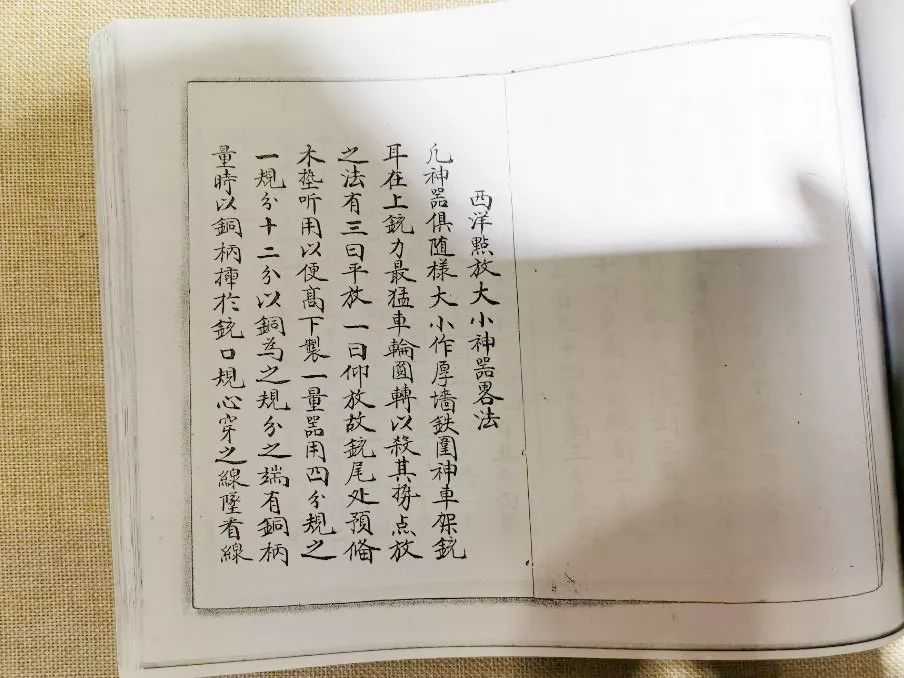 西洋點放大小神器畧法
凢神器俱随樣大小作厚墻鉄圍神車架銃
耳在上銃力最猛車輪圓轉以殺其㔟点放
之法有三曰平放一曰仰放故銃尾处預俻
木墊听用以便髙下製一量噐用四分規之
一規分十二分以銅為之規分之端有銅柄
量時以銅柄揷扵銃口規心穿之線墜看線